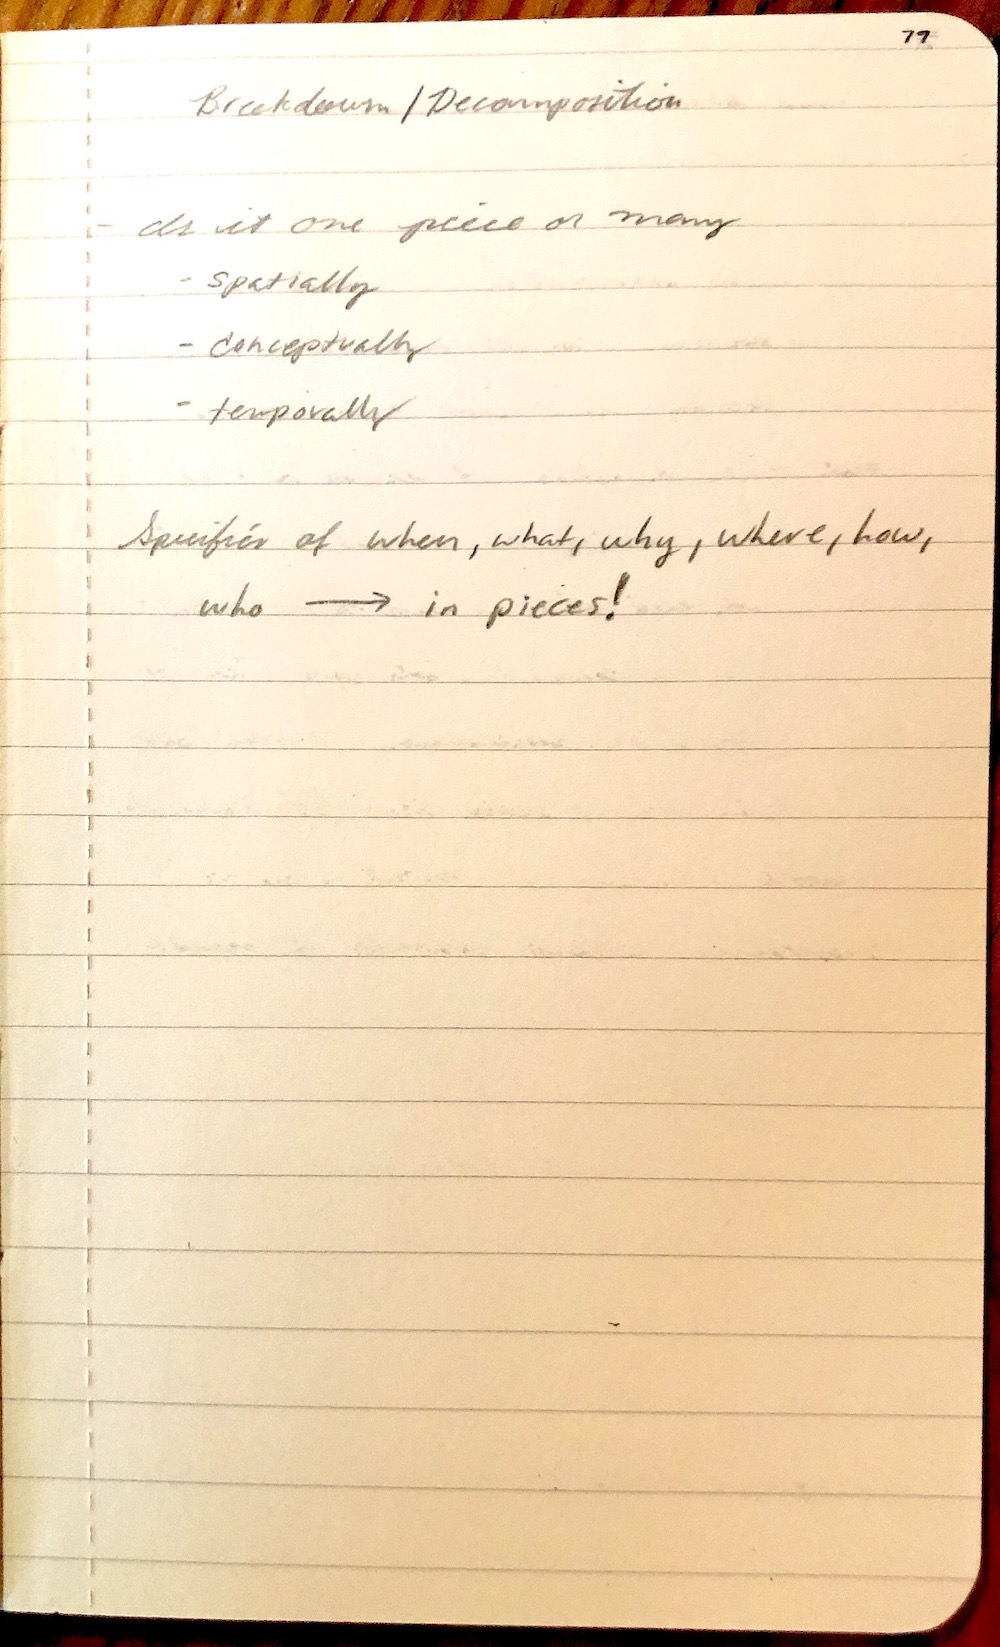 77
Breakdown / Decomposition
- Is it one piece or many
- spatially
- conceptually
- temporally
Specifics of when, what, why, where, how,
who → in pieces!